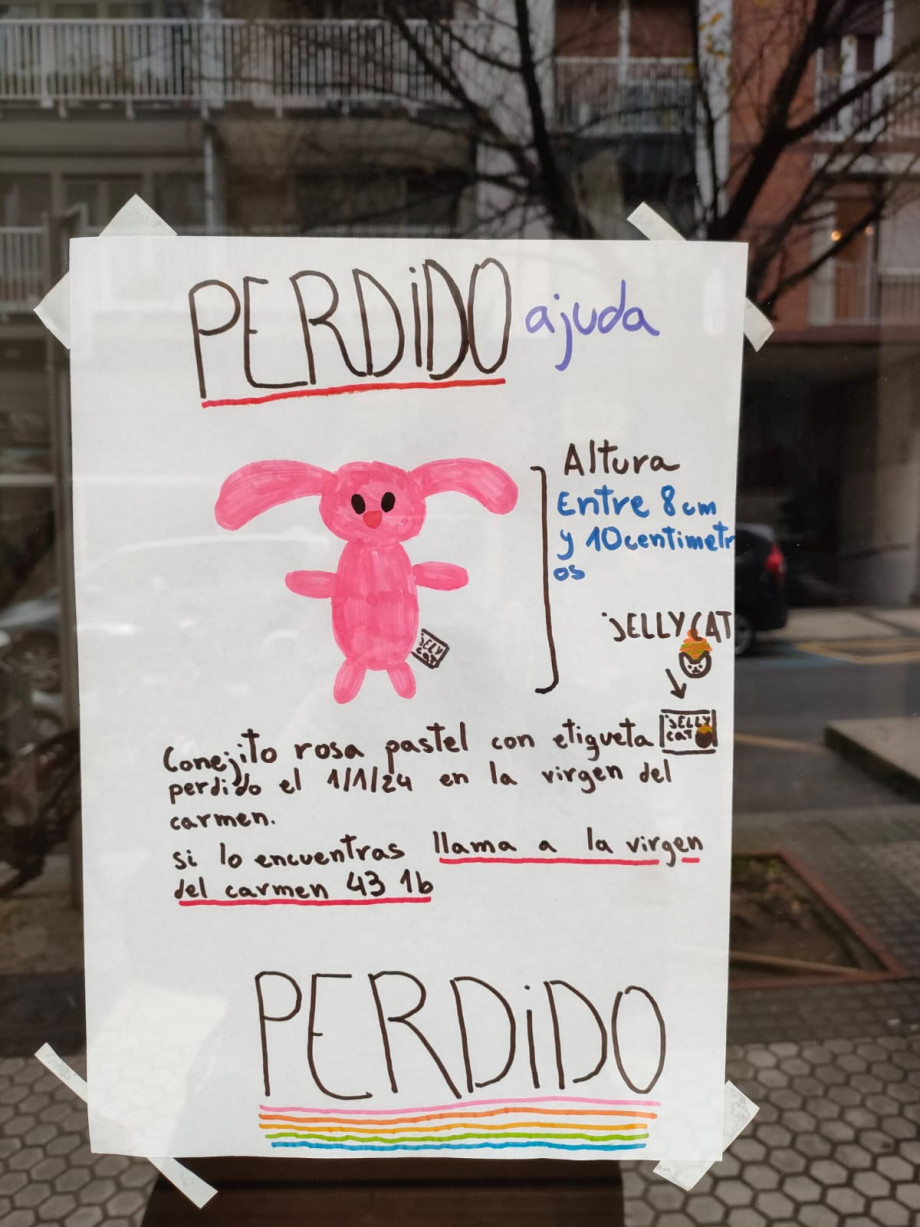 PERDiDO ajuda
Altura
Entre 8cm
y 10 centimetr
os
JELLYCAT
JELLY
CAT
JELLY
CAT
Conejito rosa pastel con etigueta
perdido el 1/1/24 en la virgen del
carmen.
si lo encuentras llama a la virgen
del carmen 43 1b
PERDiDO